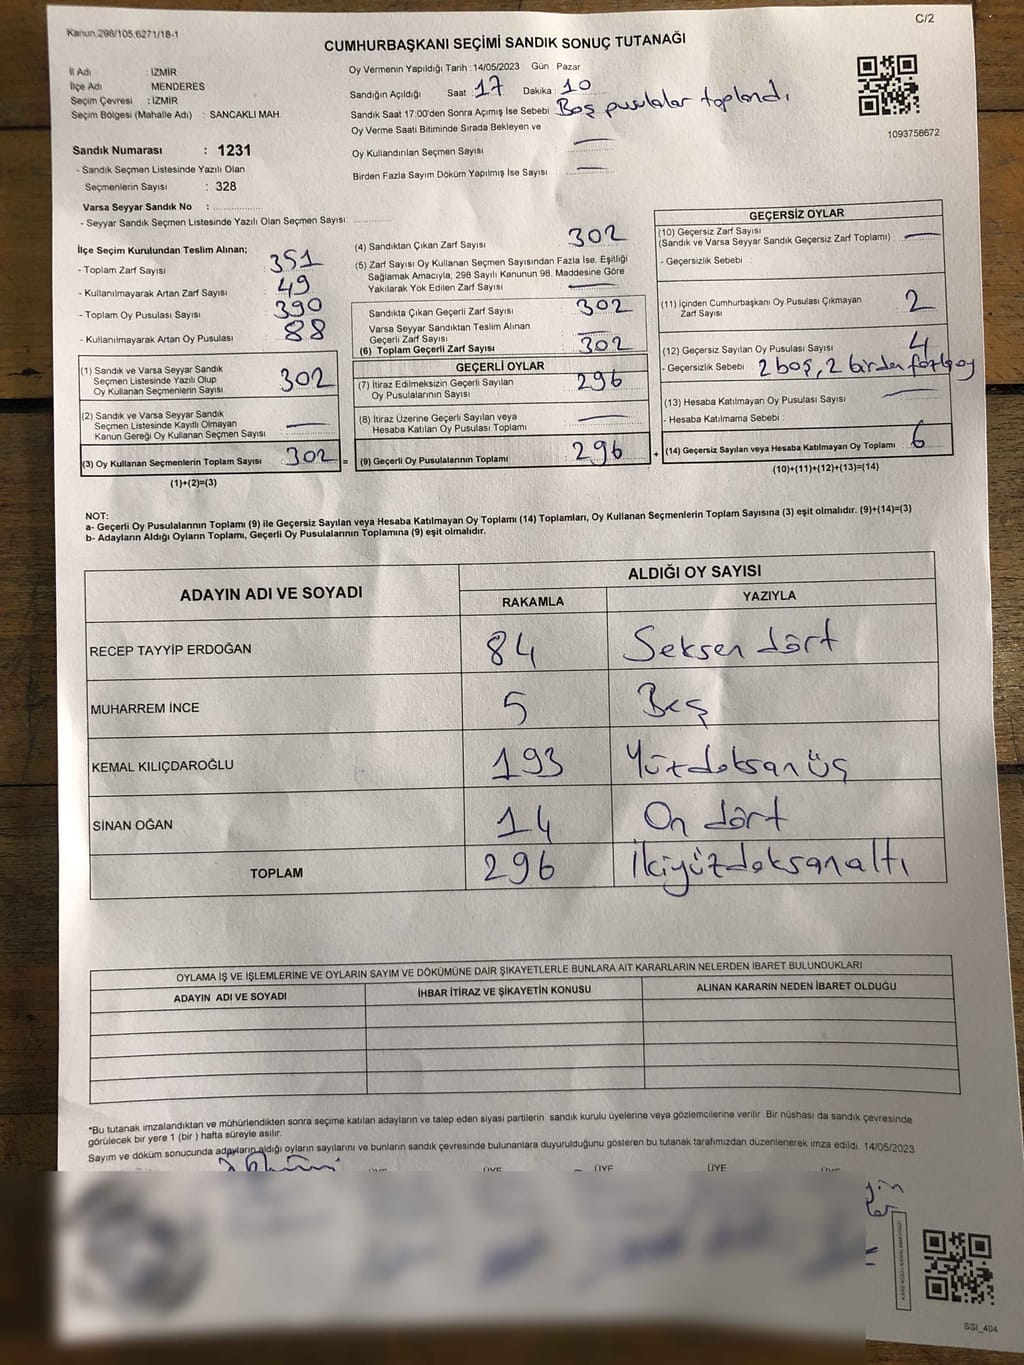 Kanun.298/105,6271/18-1
C/2
CUMHURBAŞKANI SEÇİMİ SANDIK SONUÇ TUTANAĞI
İl Adı : İZMİR
İlçe Adı MENDERES
Seçim Çevresi : İZMİR
Seçim Bölgesi (Mahalle Adı) : SANCAKLI MAH.
Sandık Numarası : 1231
- Sandık Seçmen Listesinde Yazılı Olan
Seçmenlerin Sayısı : 328
Varsa Seyyar Sandık No : ..................
- Seyyar Sandık Seçmen Listesinde Yazılı Olan Seçmen Sayısı: ............
Oy Vermenin Yapıldığı Tarih : 14/05/2023 Gün : Pazar
Sandığın Açıldığı Saat : 17 Dakika : 10
Sandık Saat 17:00'den Sonra Açımış İse Sebebi : Boş pusulalar toplandı
Oy Verme Saati Bitiminde Sırada Bekleyen ve
Oy Kullandırılan Seçmen Sayısı : —
Birden Fazla Sayım Döküm Yapılmış İse Sayısı : —
1093758672
İlçe Seçim Kurulundan Teslim Alınan;
- Toplam Zarf Sayısı : 351
- Kullanılmayarak Artan Zarf Sayısı : 49
- Toplam Oy Pusulası Sayısı : 390
- Kullanılmayarak Artan Oy Pusulası : 88
(1) Sandık ve Varsa Seyyar Sandık
Seçmen Listesinde Yazılı Olup
Oy Kullanan Seçmenlerin Sayısı : 302
(2) Sandık ve Varsa Seyyar Sandık
Seçmen Listesinde Kayıtlı Olmayan
Kanun Gereği Oy Kullanan Seçmen Sayısı : —
(3) Oy Kullanan Seçmenlerin Toplam Sayısı : 302 =
(1)+(2)=(3)
(4) Sandıktan Çıkan Zarf Sayısı : 302
(5) Zarf Sayısı Oy Kullanan Seçmen Sayısından Fazla İse, Eşitliği
Sağlamak Amacıyla; 298 Sayılı Kanunun 98. Maddesine Göre
Yakılarak Yok Edilen Zarf Sayısı : —
Sandıkta Çıkan Geçerli Zarf Sayısı : 302
Varsa Seyyar Sandıktan Teslim Alınan
Geçerli Zarf Sayısı : —
(6) Toplam Geçerli Zarf Sayısı : 302
GEÇERLİ OYLAR
(7) İtiraz Edilmeksizin Geçerli Sayılan
Oy Pusulalarının Sayısı : 296
(8) İtiraz Üzerine Geçerli Sayılan veya
Hesaba Katılan Oy Pusulası Toplamı : —
(9) Geçerli Oy Pusulalarının Toplamı : 296 +
GEÇERSİZ OYLAR
(10) Geçersiz Zarf Sayısı
(Sandık ve Varsa Seyyar Sandık Geçersiz Zarf Toplamı) : —
- Geçersizlik Sebebi :
(11) İçinden Cumhurbaşkanı Oy Pusulası Çıkmayan
Zarf Sayısı : 2
(12) Geçersiz Sayılan Oy Pusulası Sayısı : 4
- Geçersizlik Sebebi : 2 boş, 2 birden fazla oy
(13) Hesaba Katılmayan Oy Pusulası Sayısı : —
- Hesaba Katılmama Sebebi :
(14) Geçersiz Sayılan veya Hesaba Katılmayan Oy Toplamı : 6
(10)+(11)+(12)+(13)=(14)
NOT:
a- Geçerli Oy Pusulalarının Toplamı (9) ile Geçersiz Sayılan veya Hesaba Katılmayan Oy Toplamı (14) Toplamları, Oy Kullanan Seçmenlerin Toplam Sayısına (3) eşit olmalıdır. (9)+(14)=(3)
b- Adayların Aldığı Oyların Toplamı, Geçerli Oy Pusulalarının Toplamına (9) eşit olmalıdır.
ADAYIN ADI VE SOYADI ALDIĞI OY SAYISI
RAKAMLA YAZIYLA
RECEP TAYYİP ERDOĞAN 84 Seksen dört
MUHARREM İNCE 5 Beş
KEMAL KILIÇDAROĞLU 193 Yüzdoksanüç
SİNAN OĞAN 14 On dört
TOPLAM 296 İkiyüzdoksanaltı
OYLAMA İŞ VE İŞLEMLERİNE VE OYLARIN SAYIM VE DÖKÜMÜNE DAİR ŞİKAYETLERLE BUNLARA AİT KARARLARIN NELERDEN İBARET BULUNDUKLARI
ADAYIN ADI VE SOYADI İHBAR İTİRAZ VE ŞİKAYETİN KONUSU ALINAN KARARIN NEDEN İBARET OLDUĞU
*Bu tutanak imzalandıktan ve mühürlendikten sonra seçime katılan adayların ve talep eden siyasi partilerin sandık kurulu üyelerine veya gözlemcilerine verilir. Bir nüshası da sandık çevresinde
görülecek bir yere 1 (bir) hafta süreyle asılır.
Sayım ve döküm sonucunda adayların aldığı oyların sayılarını ve bunların sandık çevresinde bulunanlara duyurulduğunu gösteren bu tutanak tarafımızdan düzenlenerek imza edildi. 14/05/2023
ÜYE ÜYE ÜYE ÜYE ÜYE
SSİ_404